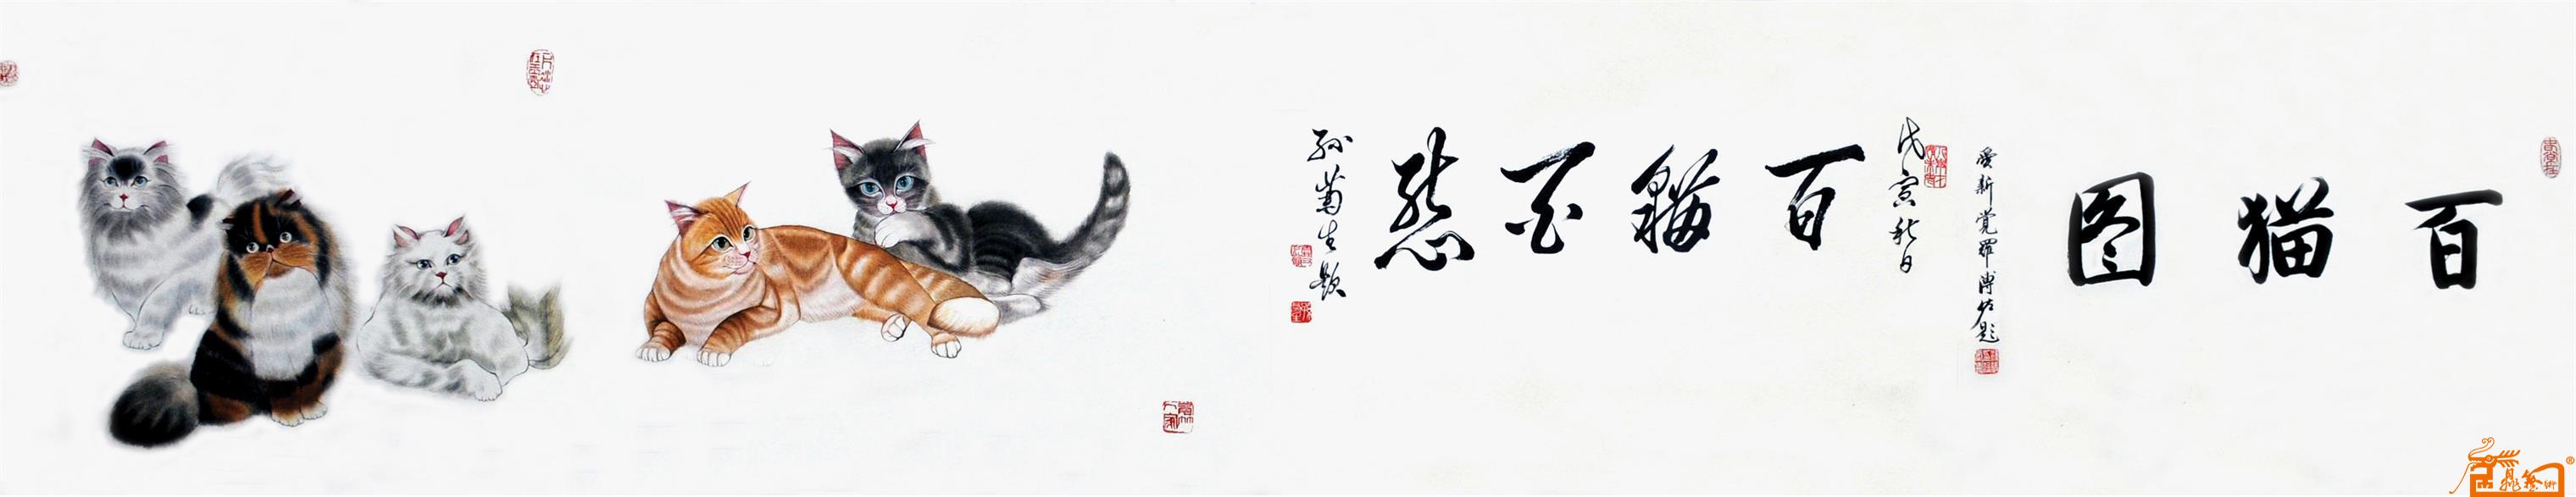 百猫图
爱新觉罗溥佐题
戊寅秋日
百貓百態
孙菊生题